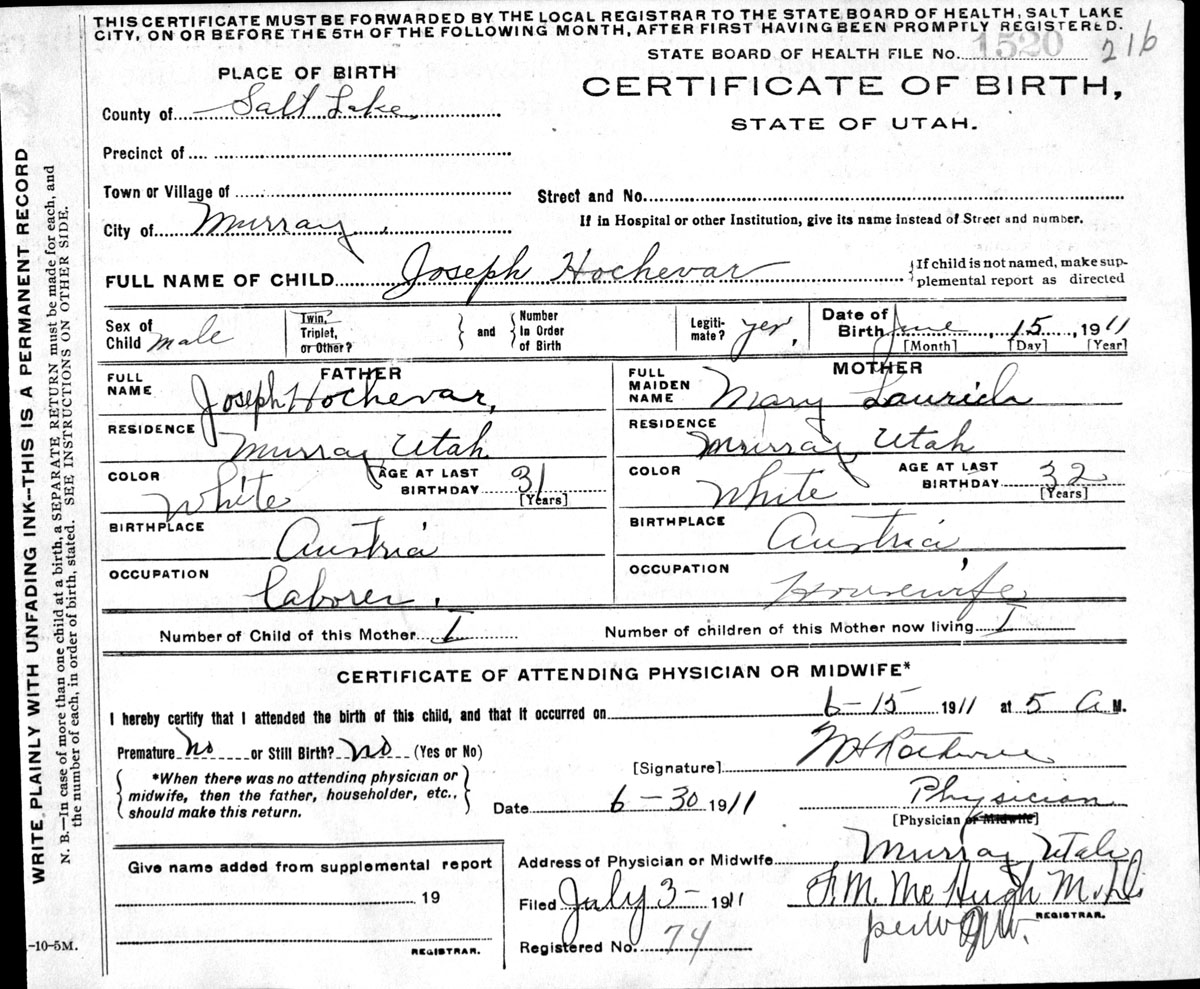 THIS CERTIFICATE MUST BE FORWARDED BY THE LOCAL REGISTRAR TO THE STATE BOARD OF HEALTH, SALT LAKE
CITY, ON OR BEFORE THE 5TH OF THE FOLLOWING MONTH, AFTER FIRST HAVING BEEN PROMPTLY REGISTERED.
STATE BOARD OF HEALTH FILE No. 1520 216
PLACE OF BIRTH
CERTIFICATE OF BIRTH,
STATE OF UTAH.
County of Salt Lake,
Precinct of
Town or Village of
Street and No.
City of Murray,
If in Hospital or other Institution, give its name instead of Street and number.
FULL NAME OF CHILD Joseph Hochevar {If child is not named, make sup-
plemental report as directed
Sex of Child male
Twin, Triplet, or Other? } and { Number In Order of Birth
Legiti-mate? yes,
Date of Birth June, 15, 1911
[Month] [Day] [Year]
FATHER
FULL NAME Joseph Hochevar,
RESIDENCE Murray, Utah
COLOR White AGE AT LAST BIRTHDAY 31 [Years]
BIRTHPLACE Austria
OCCUPATION laborer.
MOTHER
FULL MAIDEN NAME Mary Laurich
RESIDENCE Murray, Utah
COLOR White AGE AT LAST BIRTHDAY 32 [Years]
BIRTHPLACE Austria
OCCUPATION Housewife
Number of Child of this Mother I
Number of children of this Mother now living I
CERTIFICATE OF ATTENDING PHYSICIAN OR MIDWIFE*
I hereby certify that I attended the birth of this child, and that it occurred on 6-15 1911 at 5 A M.
Premature No or Still Birth? No (Yes or No)
*When there was no attending physician or
midwife, then the father, householder, etc.,
should make this return.
[Signature]
Date 6-30 1911
Physician
[Physician or Midwife]
Address of Physician or Midwife Murray Utah
Give name added from supplemental report
19
REGISTRAR.
Filed July 3- 1911 F. M. McHugh M.D.
REGISTRAR.
Registered No. 74
-10-5M.
WRITE PLAINLY WITH UNFADING INK--THIS IS A PERMANENT RECORD
N. B.—In case of more than one child at a birth, a SEPARATE RETURN must be made for each, and
the number of each, in order of birth, stated. SEE INSTRUCTIONS ON OTHER SIDE.